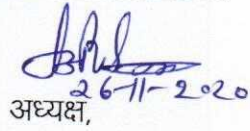 26-11-2020
अध्यक्ष,